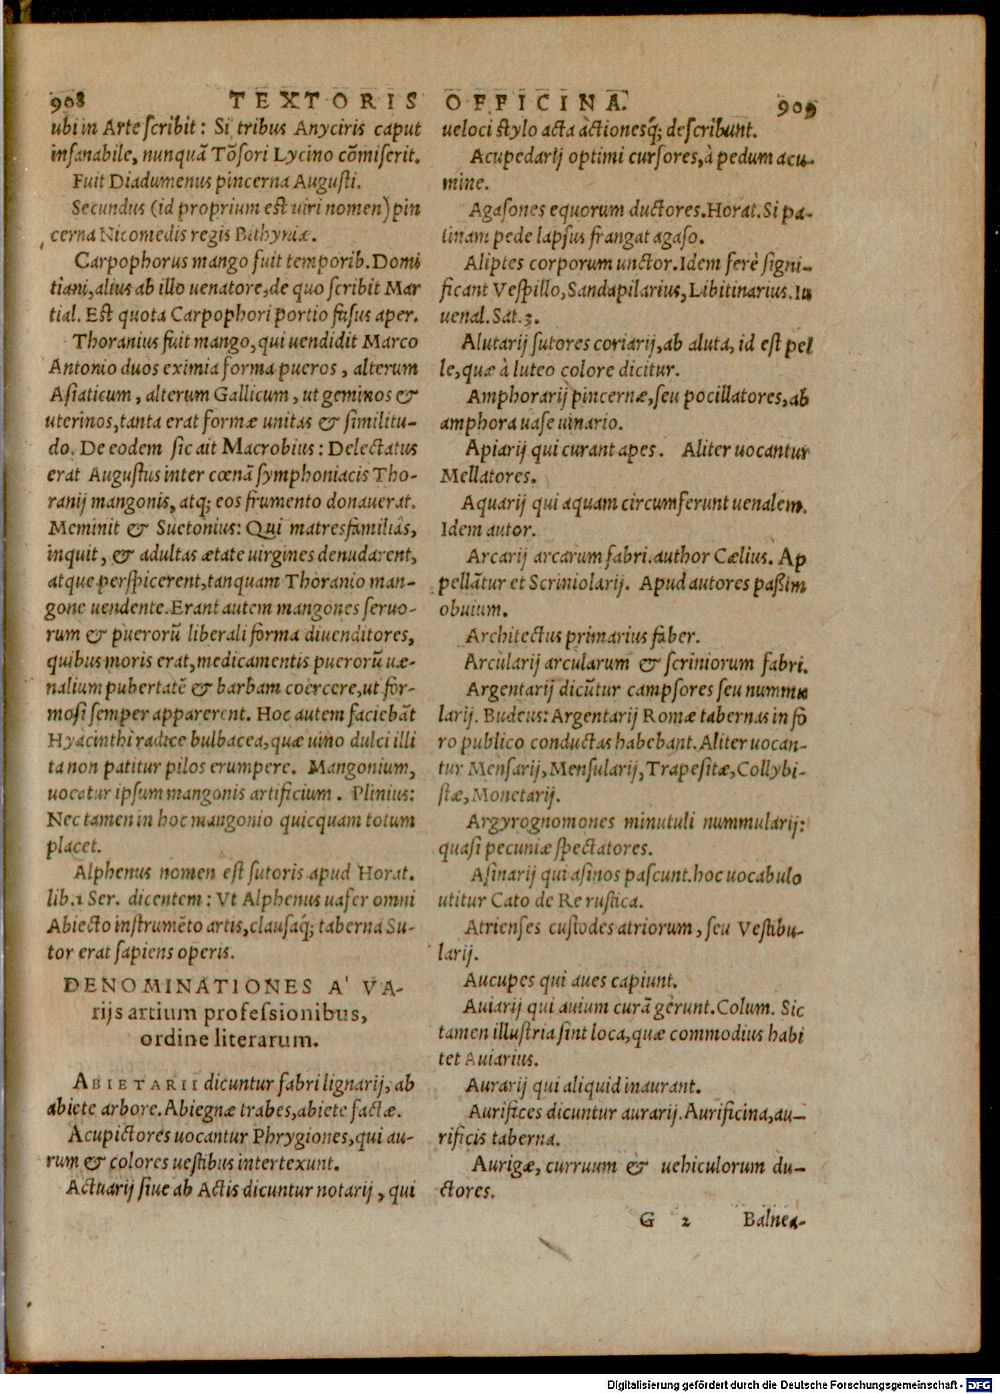 908 TEXTORIS OFFICINA. 909
ubi in Arte scribit: Si tribus Anyciris caput
insanabile, nunquā Tōsori Lycino cōmiserit.
Fuit Diadumenus pincerna Augusti.
Secundus (id proprium est uiri nomen) pin
cerna Nicomedis regis Bithyniæ.
Carpophorus mango fuit temporib. Domi
tiani, alius ab illo uenatore, de quo scribit Mar
tial. Est quota Carpophori portio fusus aper.
Thoranius fuit mango, qui uendidit Marco
Antonio duos eximia forma pueros, alterum
Asiaticum, alterum Gallicum, ut geminos &
uterinos, tanta erat formæ unitas & similitu-
do. De eodem sic ait Macrobius: Delectatus
erat Augustus inter cœnā symphoniacis Tho-
ranij mangonis, atq; eos frumento donauerat.
Meminit & Suetonius: Qui matresfamiliâs,
inquit, & adultas ætate uirgines denudarent,
atque perspicerent, tanquam Thoranio man-
gone uendente. Erant autem mangones seruo-
rum & puerorū liberali forma diuenditores,
quibus moris erat, medicamentis puerorū uæ-
nalium pubertatē & barbam coërcere, ut for-
mosi semper apparerent. Hoc autem faciebāt
Hyacinthi radice bulbacea, quæ uino dulci illi
ta non patitur pilos erumpere. Mangonium,
uocatur ipsum mangonis artificium. Plinius:
Nec tamen in hoc mangonio quicquam totum
placet.
Alphenus nomen est sutoris apud Horat.
lib.1 Ser. dicentem: Vt Alphenus uafer omni
Abiecto instrumēto artis, clausaq́; taberna Su-
tor erat sapiens operis.
DENOMINATIONES A' VA-
rijs artium professionibus,
ordine literarum.
ABIETARII dicuntur fabri lignarij, ab
abiete arbore. Abiegnæ trabes, abiete factæ.
Acupictores uocantur Phrygiones, qui au-
rum & colores uestibus intertexunt.
Actuarij siue ab Actis dicuntur notarij, qui
ueloci stylo acta àctionesq́; describunt.
Acupedarij optimi cursores, à pedum acu-
mine.
Agasones equorum ductores. Horat. Si pa-
tinam pede lapsus frangat agaso.
Aliptes corporum unctor. Idem ferè signi-
ficant Vespillo, Sandapilarius, Libitinarius. Iu
uenal. Sat. 3.
Alutarij sutores coriarij, ab aluta, id est pel
le, quæ à luteo colore dicitur.
Amphorarij pincernæ, seu pocillatores, ab
amphora uase uinario.
Apiarij qui curant apes. Aliter uocantur
Mellatores.
Aquarij qui aquam circumferunt uenalem.
Idem autor.
Arcarij arcarum fabri. author Cælius. Ap
pellātur et Scriniolarij. Apud autores paßim
obuium.
Architectus primarius faber.
Arcularij arcularum & scriniorum fabri.
Argentarij dicūtur campsores seu nummu
larij. Budeus: Argentarij Romæ tabernas in fo
ro publico conductas habebant. Aliter uocan-
tur Mensarij, Mensularij, Trapesitæ, Collybi-
stæ, Monetarij.
Argyrognomones minutuli nummularij:
quasi pecuniæ spectatores.
Asinarij qui asinos pascunt. hoc uocabulo
utitur Cato de Re rustica.
Atrienses custodes atriorum, seu Vestibu-
larij.
Aucupes qui aues capiunt.
Auiarij qui auium curā gerunt. Colum. Sic
tamen illustria sint loca, quæ commodius habi
tet Auiarius.
Aurarij qui aliquid inaurant.
Aurifices dicuntur aurarij. Aurificina, au-
rificis taberna.
Aurigæ, curruum & uehiculorum du-
ctores.
G 2 Balnea-
Digitalisierung gefördert durch die Deutsche Forschungsgemeinschaft - DFG